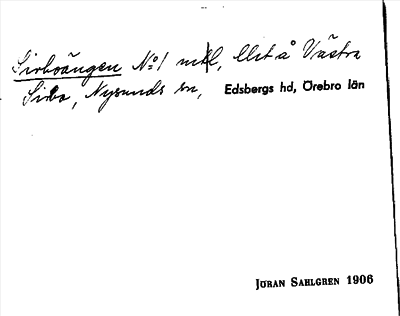 Sirboängen No 1 mtl, Utst å Västra
Sirbo, Nysunds sn, Edsbergs hd, Örebro län
JÖRAN SAHLGREN 1906